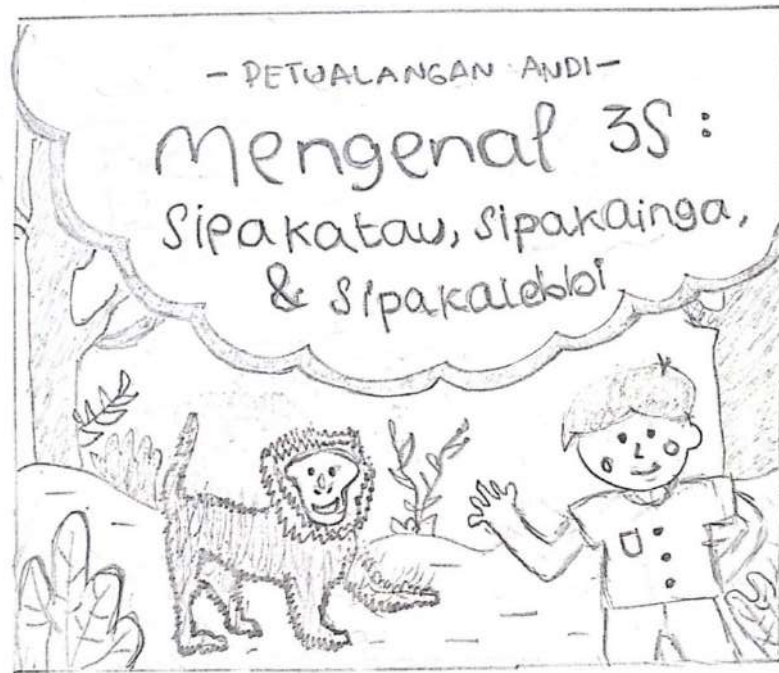 - PETUALANGAN ANDI -
Mengenal 3S :
Sipakatau, sipakainga,
& sipakalebbi